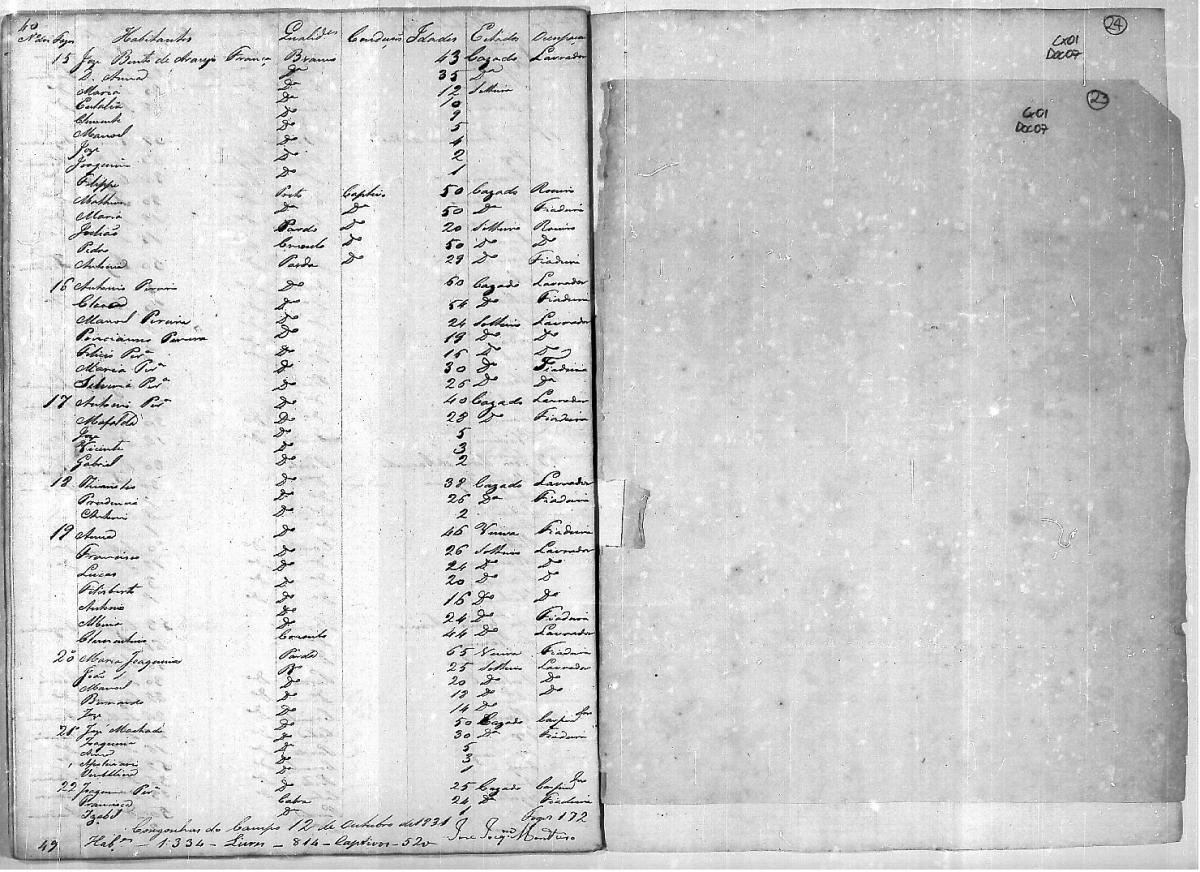 40
Nº dos Fogos Habitantes Qualides Condição Idades Estados Occupação
15 Joze Bento de Araujo França Branco 43 Cazado Lavrador
D. Anna Dª 35 Dª
Maria Dª 12 Solteira
Dº 10
Clemente Dº 9
Manoel Dº 5
Joze Dº 4
Joaquim Dº 2
Filippe Dº 1
Matheus Preto Captivo 50 Cazado Roceiro
Maria Dª Dª 50 Dª Fiadeira
Julião Pardo Dº 20 Solteiro Roceiro
Pedro Crioulo Dº 50 Dº Dº
Antonia Parda Dº 29 Dº Fiadeira
16 Antonio Pereira Dº 60 Cazado Lavrador
Clara Dº 54 Dº Fiadeira
Manoel Pereira Dº 24 Solteiro Lavrador
Poncianno Pereira Dº 19 Dº Dº
Felicio Perª Dº 15 Dº Dº
Maria Perª Dº 30 Dª Fiadeira
Silveria Perª Dº 25 Dº Dª
17 Antonio Perª Dº 40 Cazado Lavrador
Mafalda Dº 28 Dº Fiadeira
Joze Dº 5
Vicente Dº 3
Gabriel Dº 2
18 Dº 38 Cazado Lavrador
Prudencia Dº 26 Dª Fiadeira
Antonio Dº 2
19 Anna Dº 46 Veuva Fiadeira
Francisco Dº 26 Solteiro Lavrador
Lucas Dº 24 Dº Dº
Felisberto Dº 20 Dº
Antonio Dº 16 Dº Dº
Maria Dº 24 Dº Fiadeira
Clementino Crioulo 44 Dº Lavrador
20 Maria Joaquina Parda 65 Veuva Fiadeira
João Dº 25 Solteiro Lavrador
Manoel Dº 20 Dº Dº
Bernardo Dº 18 Dº Dº
Joze Dº 14 Dº
21 Joze Machado Dº 50 Cazado Carpinfro
Joaquina Dº 30 Dª Fiadeira
Anna Dº 5
Dº 3
Dº 1
22 Joaquim Perª Dº 25 Cazado Carpinfro
Francisca Cabra 24 Dª Fiadeira
Izabel Dº 1
Fogos 172
Congonhas do Campo 12 de Outubro de 1831
49 Habes – 1334 – Livres – 814 – Captivos – 520 José Joaqm Monteiro
24
Cx01
Doc07
23
Cx01
Doc07